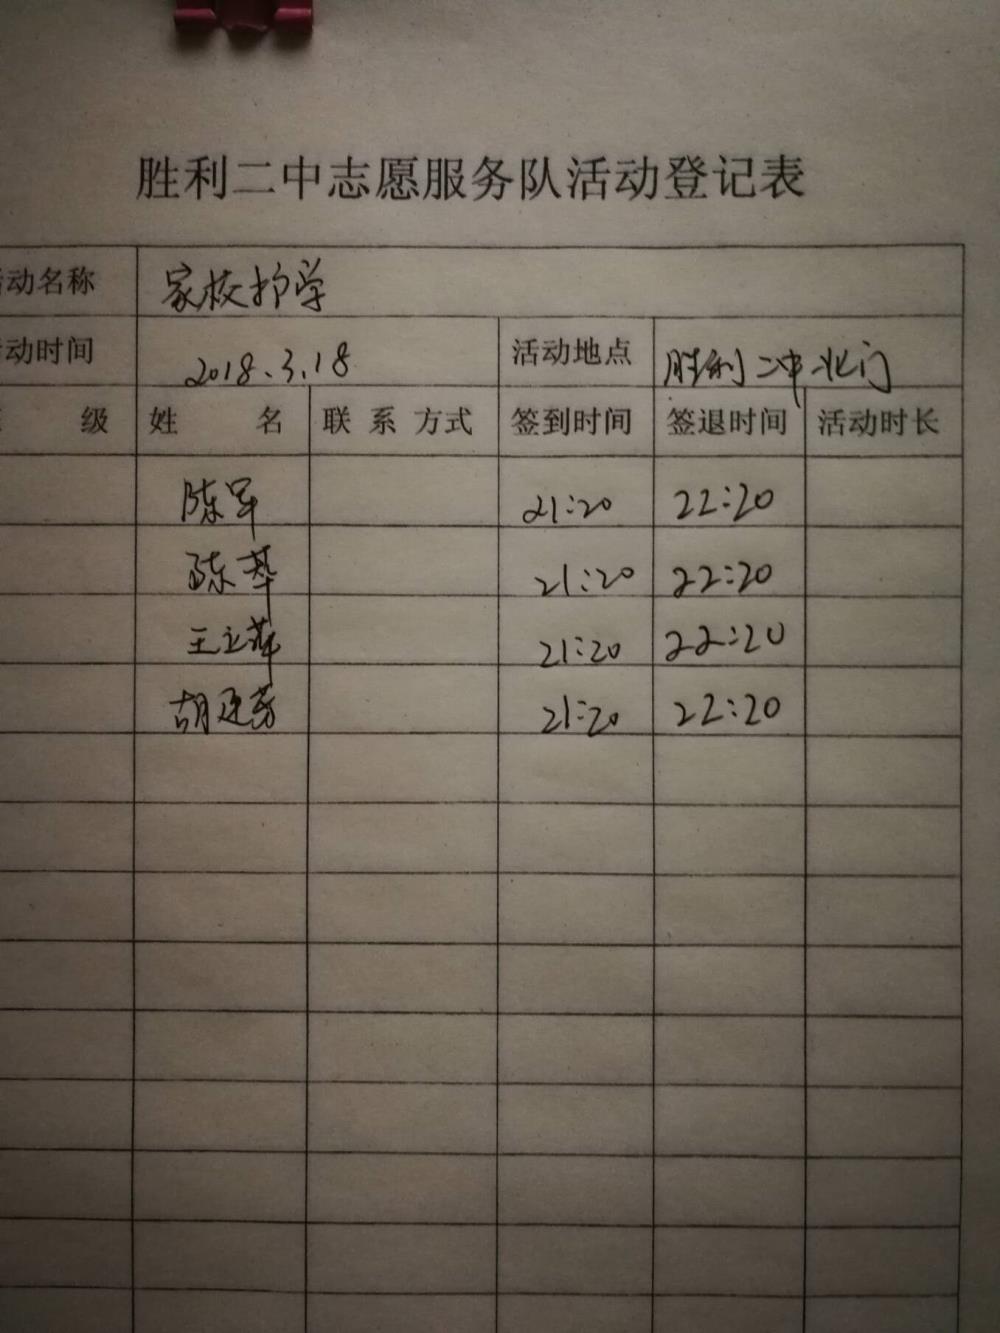 胜利二中志愿服务队活动登记表
活动名称 家校护学
活动时间 2018.3.18 活动地点 胜利二中北门
级 姓 名 联 系 方式 签到时间 签退时间 活动时长
陈军 21:20 22:20
陈 21:20 22:20
王立萍 21:20 22:20
胡延芳 21:20 22:20